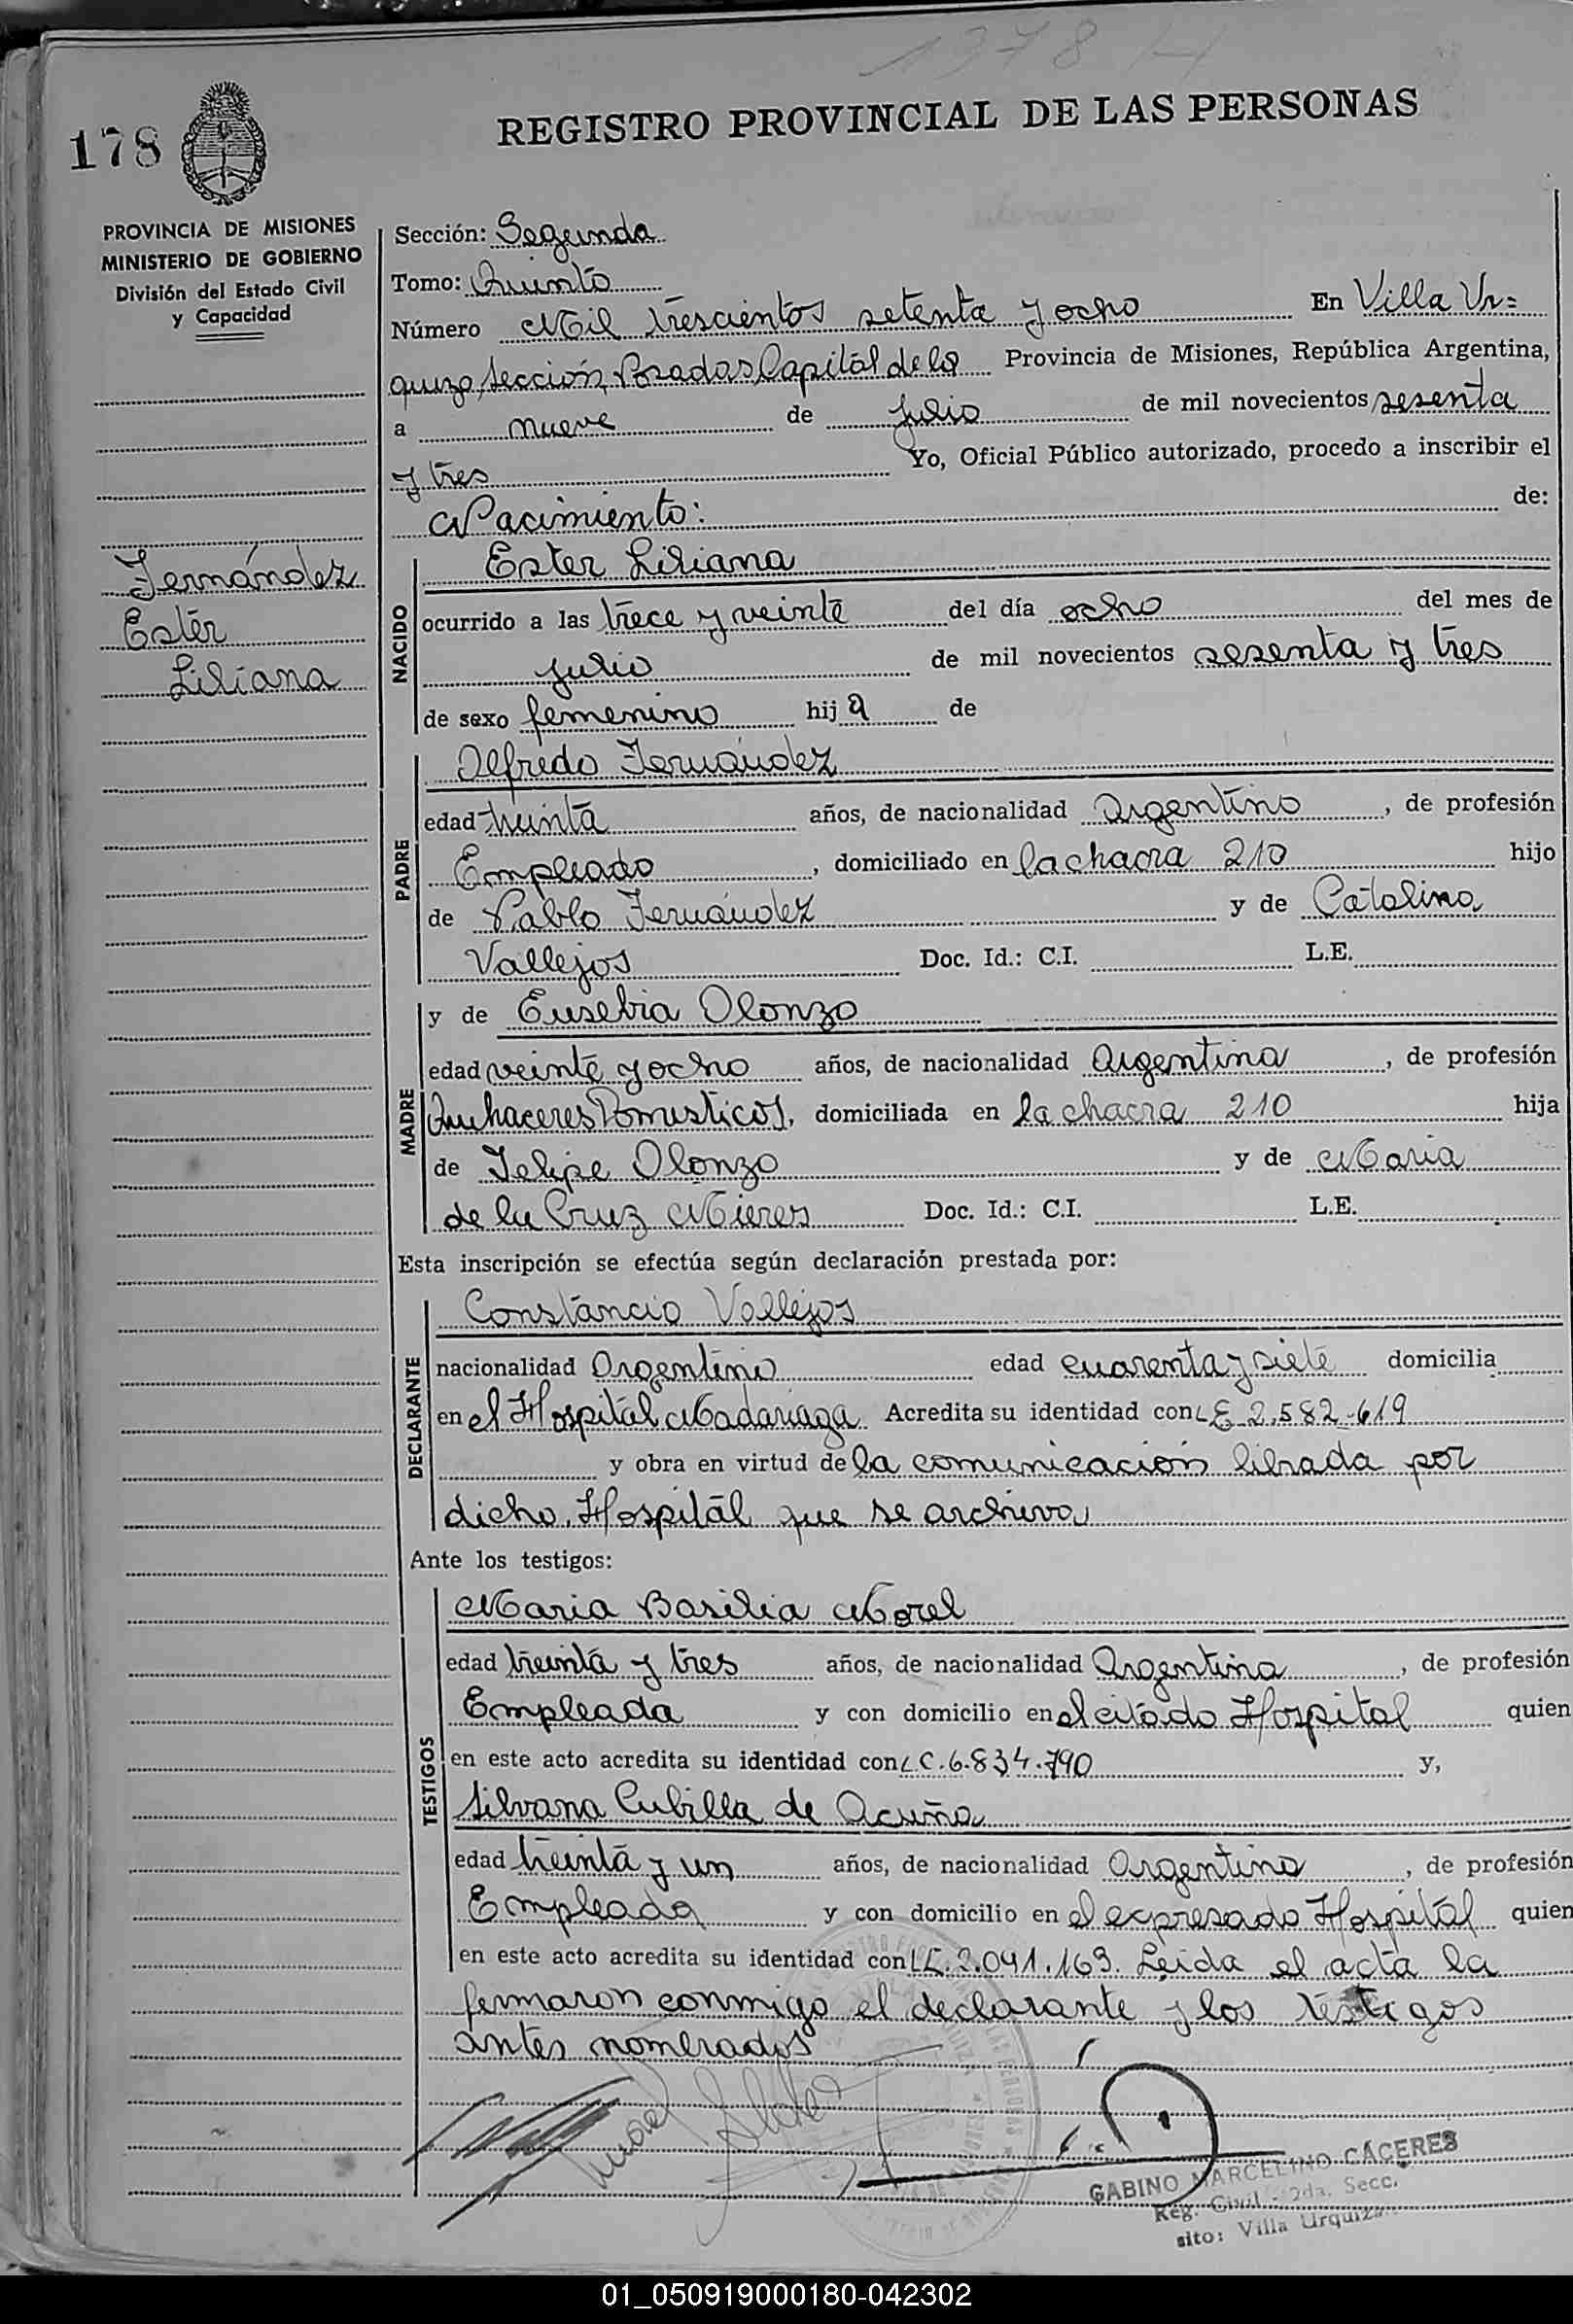 1378 H
178
REGISTRO PROVINCIAL DE LAS PERSONAS
PROVINCIA DE MISIONES
MINISTERIO DE GOBIERNO
División del Estado Civil
y Capacidad
Fernández
Ester
Liliana
Sección: Segunda
Tomo: Quinto
Número Mil trescientos setenta y ocho En Villa Ur=
quiza, sección, Posadas Capital de la Provincia de Misiones, República Argentina,
a nueve de julio de mil novecientos sesenta
y tres Yo, Oficial Público autorizado, procedo a inscribir el
Nacimiento: de:
NACIDO
Ester Liliana
ocurrido a las trece y veinte del día ocho del mes de
julio de mil novecientos sesenta y tres
de sexo femenino hija de
PADRE
Alfredo Fernández
edad treinta años, de nacionalidad Argentino, de profesión
Empleado, domiciliado en la chacra 210 hijo
de Pablo Fernández y de Catalina
Vallejos Doc. Id.: C.I. L.E.
MADRE
y de Eusebia Olonzo
edad veinte y ocho años, de nacionalidad Argentina, de profesión
Quehaceres Domesticos, domiciliada en la chacra 210 hija
de Felipe Olonzo y de Maria
de la Cruz Mieres Doc. Id.: C.I. L.E.
Esta inscripción se efectúa según declaración prestada por:
DECLARANTE
Constancio Vallejos
nacionalidad Argentino edad cuarenta y siete domicilia
en el Hospital Madariaga Acredita su identidad con L E 2.582.619
y obra en virtud de la comunicación librada por
dicho Hospital que se archiva
Ante los testigos:
TESTIGOS
Maria Basilia Morel
edad treinta y tres años, de nacionalidad Argentina, de profesión
Empleada y con domicilio en el citado Hospital quien
en este acto acredita su identidad con L C. 6.834.790 y,
Silvana Cubilla de Acuña
edad treinta y un años, de nacionalidad Argentina, de profesión
Empleada y con domicilio en el expresado Hospital quien
en este acto acredita su identidad con L C. 2.041.163. Leida el acta la
fermaron conmigo el declarante y los testigos
antes nombrados
GABINO MARCELINO CÁCERES
Reg. Civil - 2da. Secc.
sito: Villa Urquiza
01_050919000180-042302